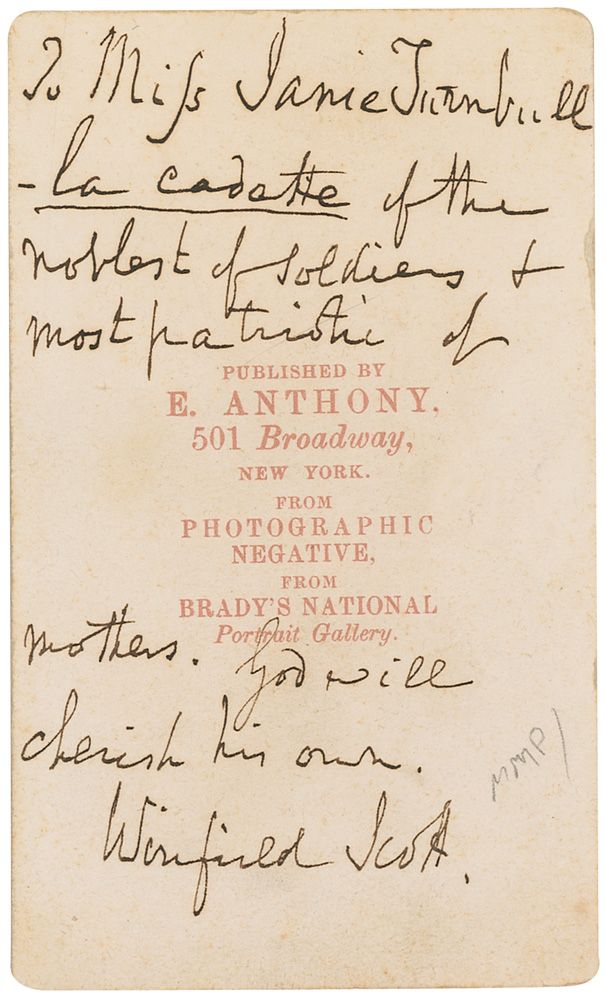 To Miss Janie Turnbull
- la cadette of the
noblest of soldiers &
most patriotic of
PUBLISHED BY
E. ANTHONY,
501 Broadway,
NEW YORK.
FROM
PHOTOGRAPHIC
NEGATIVE,
FROM
BRADY'S NATIONAL
Portrait Gallery.
mothers. God will
cherish his own.
Winfield Scott.